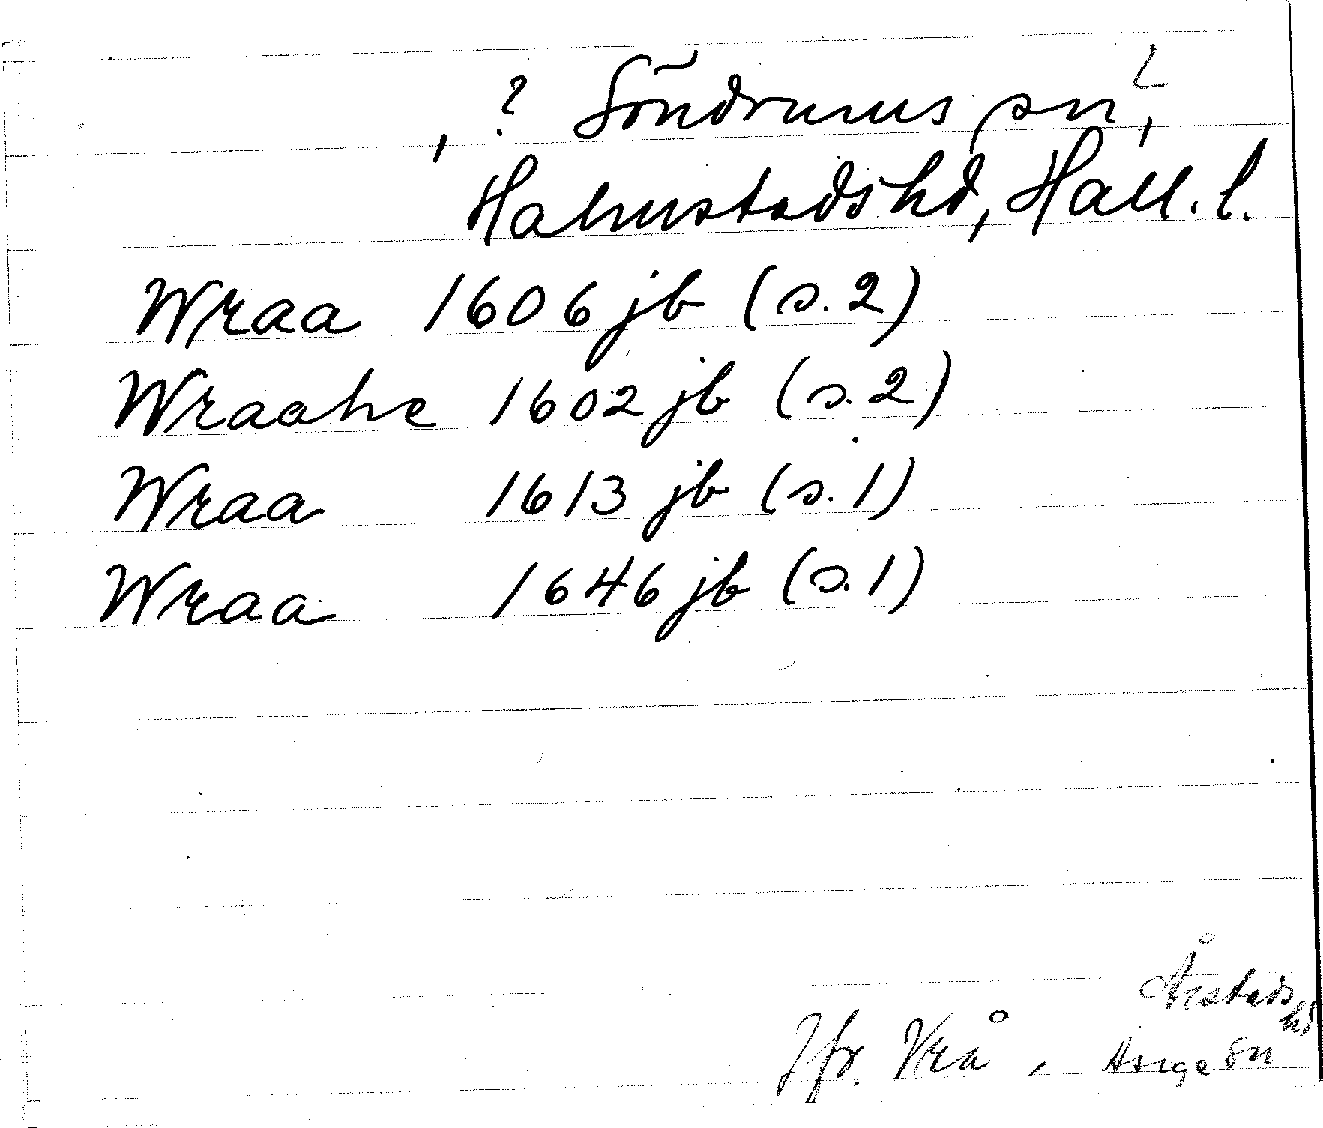 , ? Söndrums sn ?,
Halmstads hd, Hall. l.
Wraa 1606 jb (s. 2)
Wraahe 1602 jb (s. 2)
Wraa 1613 jb (s. 1)
Wraa 1646 jb (s. 1)
Årstads hd
Jfr. Vrå, Asige sn